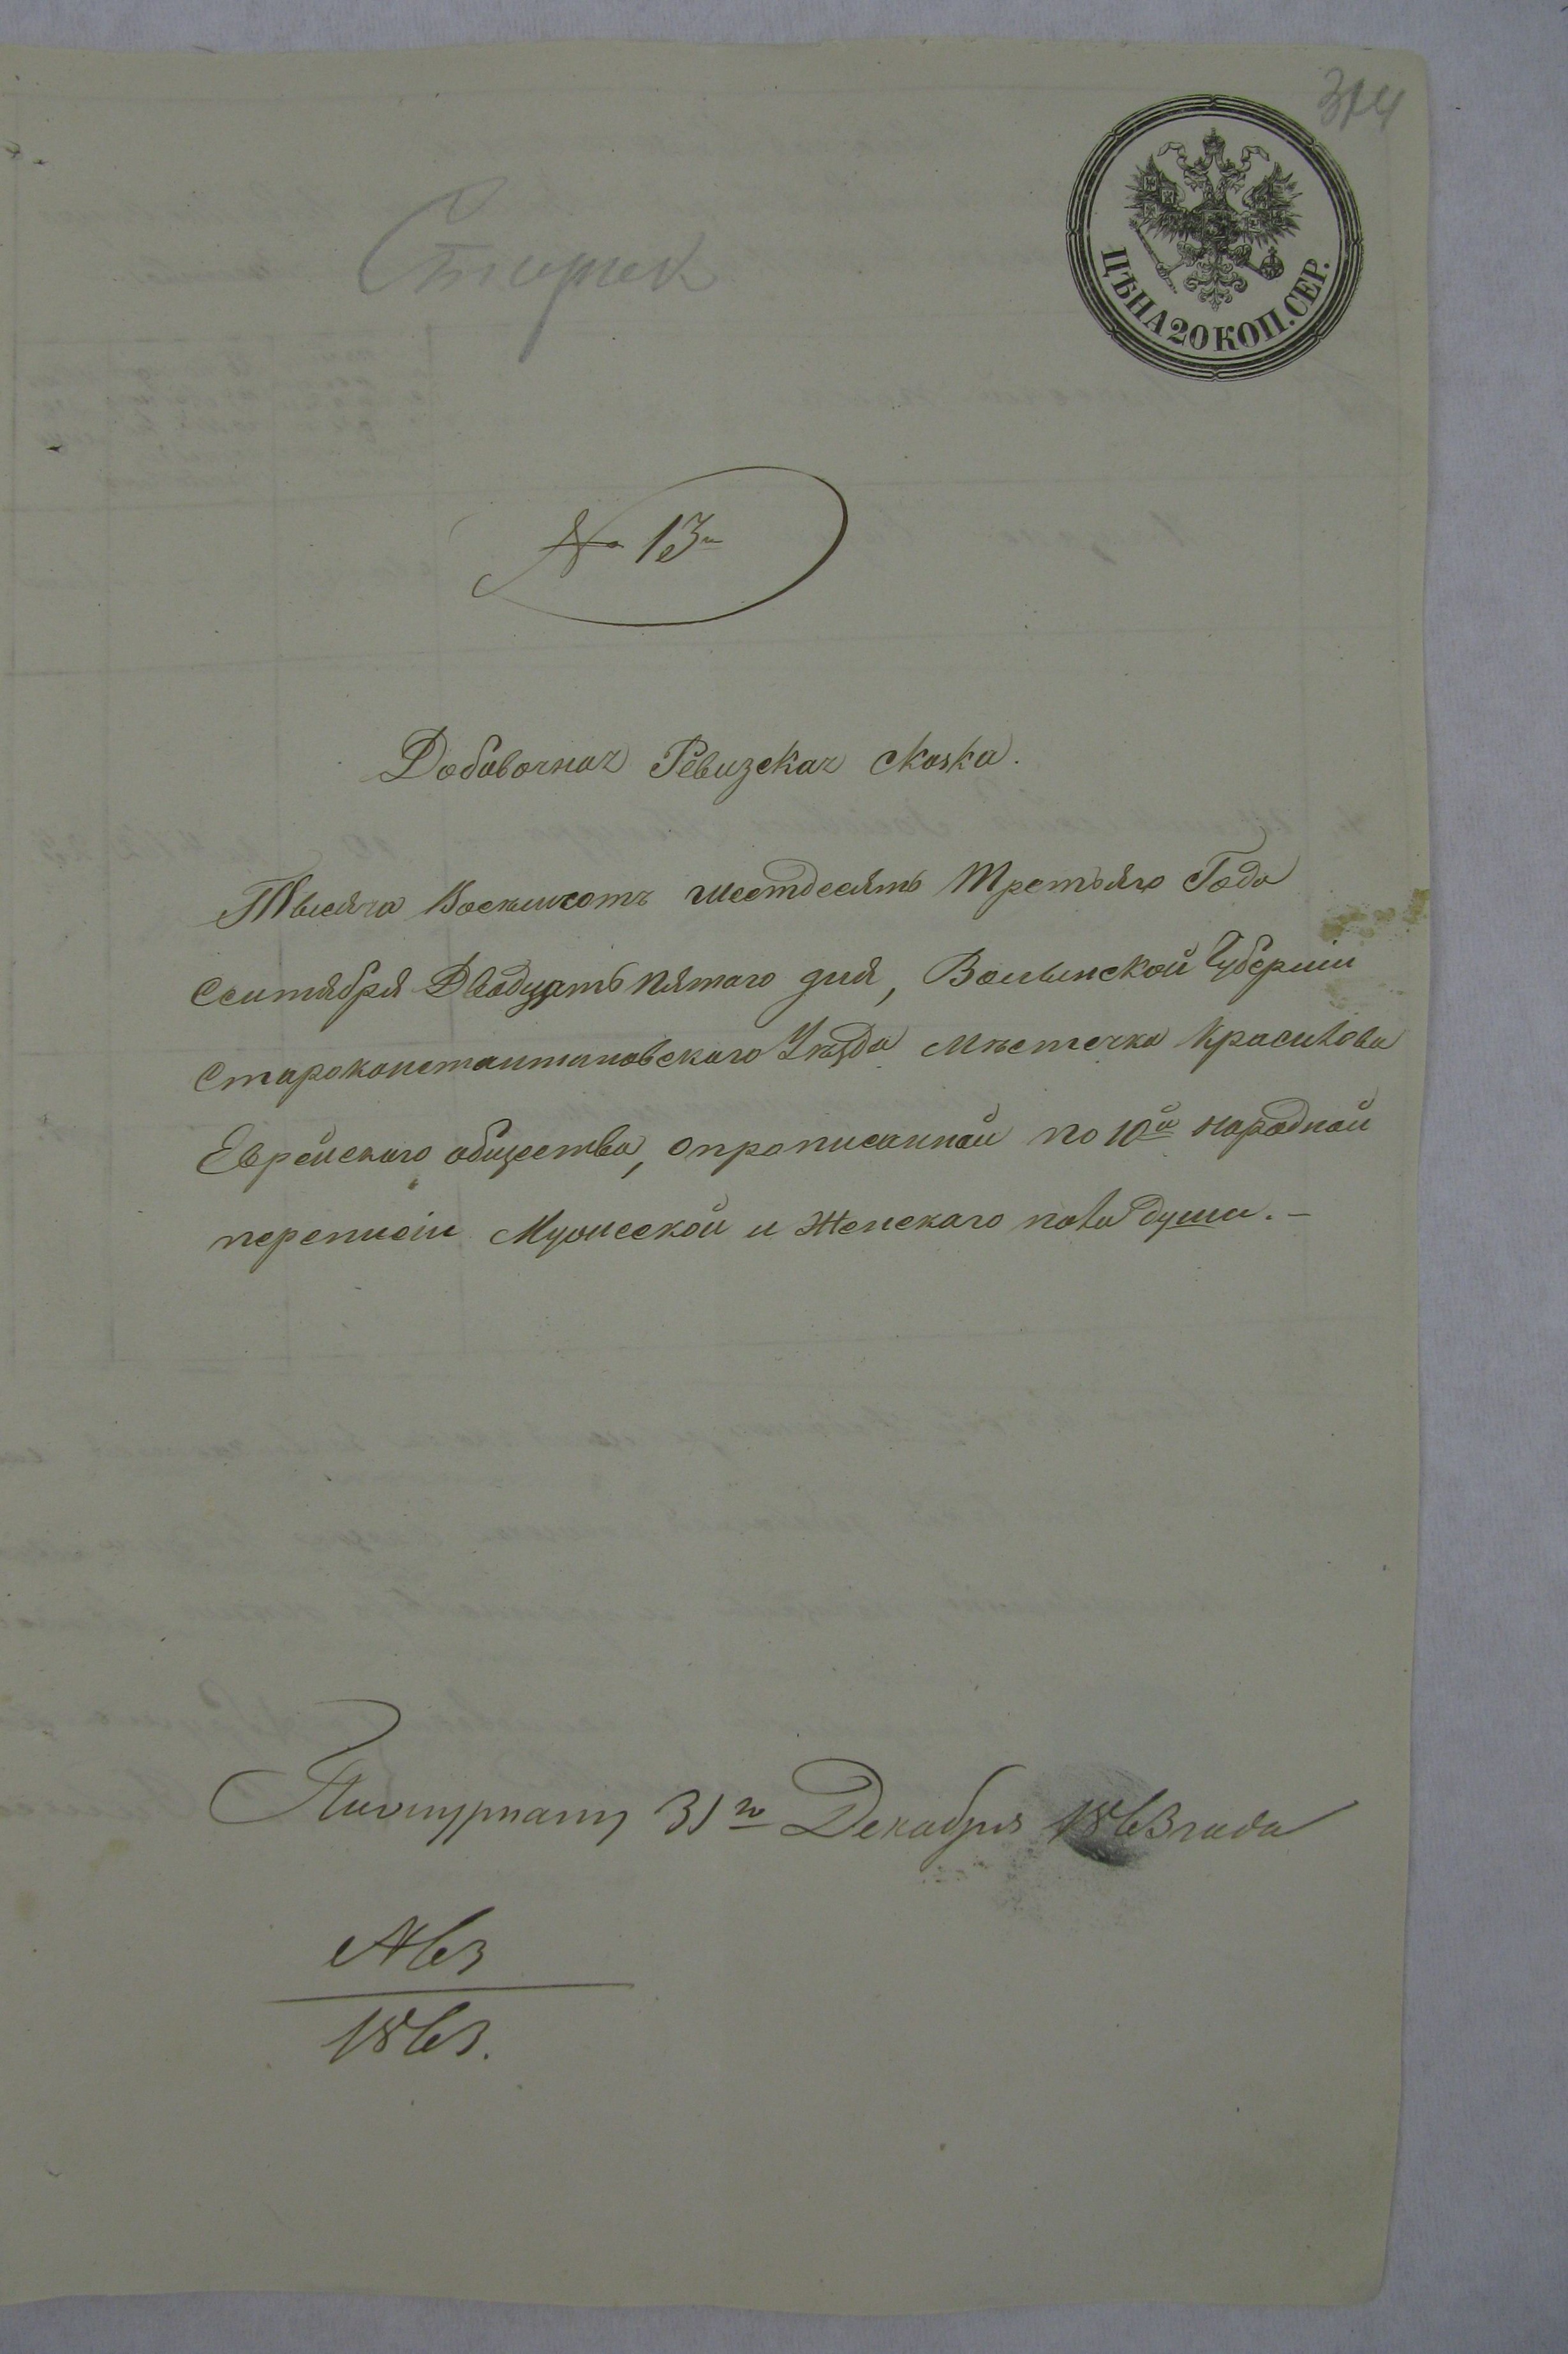 314
ЦѢНА 20 КОП. СЕР.
№ 13й
Добавочная Ревизская сказка.
Тысяча Восемьсотъ шестдесятъ Третьяго Года
Сентября Двадцать пятаго дня, Волынской Губерніи
Староконстантиновскаго Уѣзда мѣстечка Красилова
Еврейскаго общества, о прописанной по 10й народной
переписи Мужеской и Женскаго пола души. —
31го Декабря 1863 года
1863.